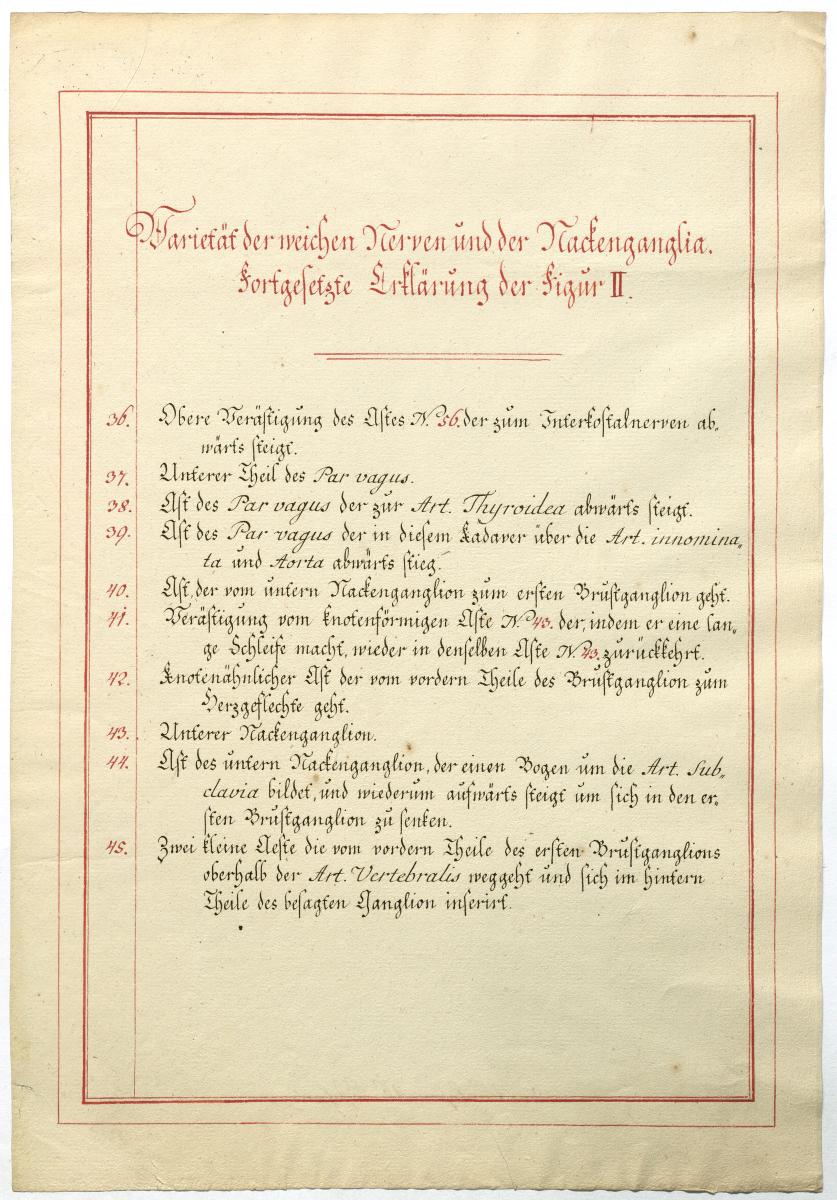 Varietät der weichen Nerven und der Nackenganglia.
Fortgesetzte Erklärung der Figur II.
36. Obere Verästigung des Astes N.o 56. der zum Interkostalnerven ab,
wärts steigt.
37. Unterer Theil des Par vagus.
38. Ast des Par vagus der zur Art. Thyroidea abwärts steigt.
39. Ast des Par vagus der in diesem Kadaver über die Art. innomina,
ta und Aorta abwärts stieg.
40. Ast, der vom untern Nackenganglion zum ersten Brustganglion geht.
41. Verästigung vom knotenförmigen Aste N.o 43. der, indem er eine lan,
ge Schleife macht, wieder in denselben Aste N.o 43. zurückkehrt.
42. Knotenähnlicher Ast der vom vordern Theile des Brustganglion zum
Herzgeflechte geht.
43. Unterer Nackenganglion.
44. Ast des untern Nackenganglion, der einen Bogen um die Art. sub,
clavia bildet, und wiederum aufwärts steigt um sich in den er,
sten Brustganglion zu senken.
45. Zwei kleine Aeste die vom vordern Theile des ersten Brustganglions
oberhalb der Art. Vertebralis weggeht und sich im hintern
Theile des besagten Ganglion inserirt.